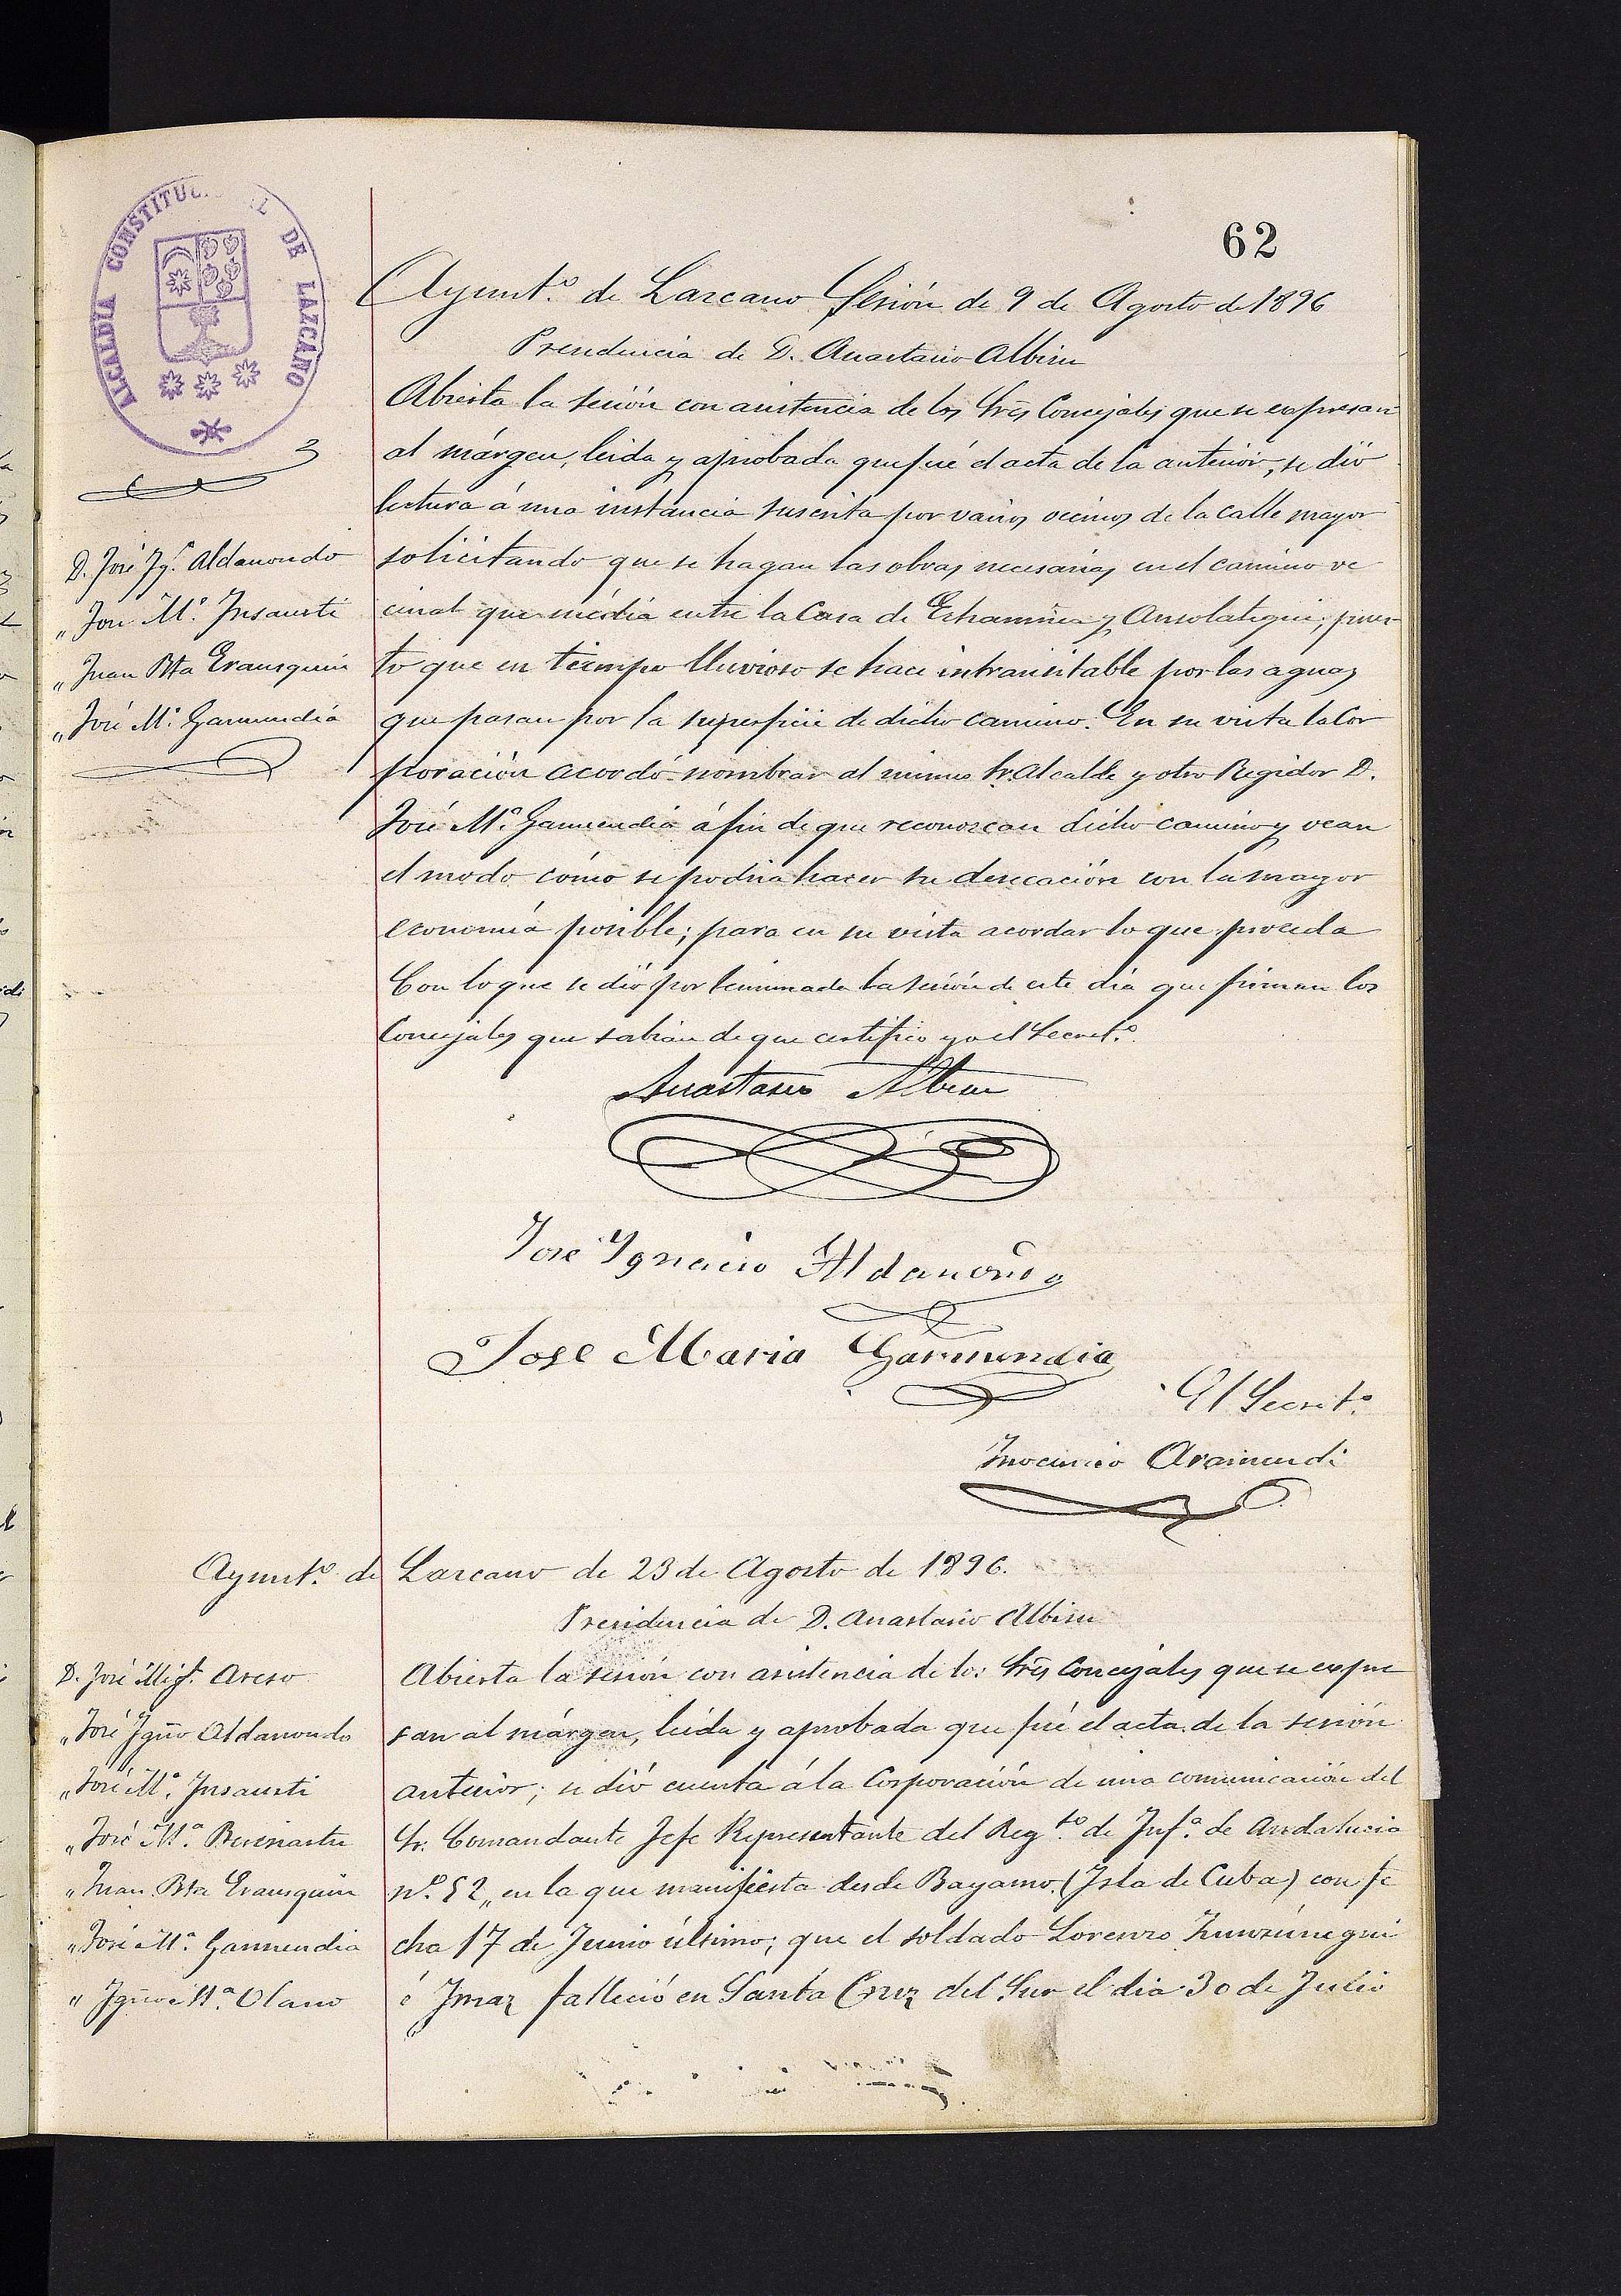 62
ALCALDÍA CONSTITUC. L DE LAZCANO
Ayunt.º de Lazcano Sesión de 9 de Agosto de 1896
Presidencia de D. Anastasio Albisu
D. José Ig.º Aldamondo
„ José M.ª Insausti
„ Juan Bta Erausquin
„ José M.ª Garmendia
Abierta la sesión con asistencia de los Sres Concejales que se expresan
al márgen, leida y aprobada que fué el acta de la anterior, se dió
lectura á una instancia suscrita por varios vecinos de la calle mayor
solicitando que se hagan las obras necesarias en el camino ve
cinal que média entre la Casa de Echaminea y Ansolategui, pues
to que en tiempo lluvioso se hace intransitable por las aguas
que pasan por la superficie de dicho camino. En su vista la Cor
poración acordó nombrar al mismo Sr. Alcalde y otro Regidor D.
José M.ª Garmendia á fin de que reconozcan dicho camino y vean
el modo cómo se podria hacer su desecación con la mayor
economía posible; para en su vista acordar lo que proceda
Con lo que se dió por terminada la sesión de este dia que firman los
Concejales que sabian de que certifico yo el Secret.º
Anastasio Albisu
José Ignacio Aldamondo
Jose Maria Garmendia
El Secret.º
Inocencio Aramendi
Ayunt.º de Lazcano de 23 de Agosto de 1896.
Presidencia de D. Anastasio Albisu
D. José Mig.l Areso
„ José Igño Aldamondo
„ José M.ª Insausti
„ José M.ª
„ Juan Bta Erausquin
„ José M.ª Garmendia
„ Igño M.ª Olano
Abierta la sesión con asistencia de los Sres Concejales que se expre
san al márgen, leida y aprobada que fué el acta de la sesión
anterior; se dió cuenta á la Corporación de una comunicación del
Sr. Comandante Jefe Representante del Reg.to de Inf.ª de Andalucia
nº. 52„ en la que manifiesta desde Bayamo (Isla de Cuba) con fe
cha 17 de Junio último; que el soldado Lorenzo Zunzúnegui
é Imaz falleció en Santa Cruz del Sur el dia 30 de Julio